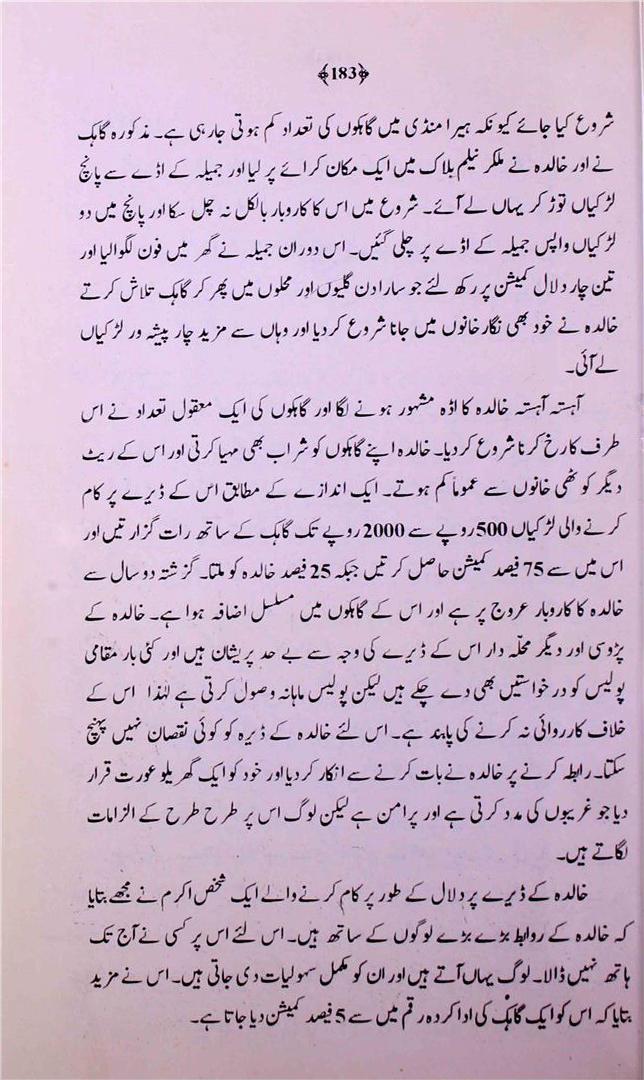 ﴿183﴾
شروع کیا جائے کیونکہ ہیرا منڈی میں گاہکوں کی تعداد کم ہوتی جارہی ہے۔ مذکورہ گاہک
نے اور خالدہ نے ملکر نیلم بلاک میں ایک مکان کرائے پر لیا اور جمیلہ کے اڈے سے پانچ
لڑکیاں توڑ کر یہاں لے آئے۔ شروع میں اس کا کاروبار بالکل نہ چل سکا اور پانچ میں دو
لڑکیاں واپس جمیلہ کے اڈے پر چلی گئیں۔ اس دوران جمیلہ نے گھر میں فون لگوالیا اور
تین چار دلال کمیشن پر رکھ لئے جو سارا دن گلیوں اور محلوں میں پھر کر گاہک تلاش کرتے
خالدہ نے خود بھی نگار خانوں میں جانا شروع کردیا اور وہاں سے مزید چار پیشہ ور لڑکیاں
لے آئی۔
آہستہ آہستہ خالدہ کا اڈہ مشہور ہونے لگا اور گاہکوں کی ایک معقول تعداد نے اس
طرف کا رخ کرنا شروع کردیا۔ خالدہ اپنے گاہکوں کو شراب بھی مہیا کرتی اور اس کے ریٹ
دیگر کوٹھی خانوں سے عموماً کم ہوتے۔ ایک اندازے کے مطابق اس کے ڈیرے پر کام
کرنے والی لڑکیاں 500 روپے سے 2000 روپے تک گاہک کے ساتھ رات گزارتیں اور
اس میں سے 75 فیصد کمیشن حاصل کرتیں جبکہ 25 فیصد خالدہ کو ملتا۔ گزشتہ دو سال سے
خالدہ کا کاروبار عروج پر ہے اور اس کے گاہکوں میں مسلسل اضافہ ہوا ہے۔ خالدہ کے
پڑوسی اور دیگر محلّہ دار اس کے ڈیرے کی وجہ سے بے حد پریشان ہیں اور کئی بار مقامی
پولیس کو درخواستیں بھی دے چکے ہیں لیکن پولیس ماہانہ وصول کرتی ہے لہٰذا اس کے
خلاف کارروائی نہ کرنے کی پابند ہے۔ اس لئے خالدہ کے ڈیرہ کو کوئی نقصان نہیں پہنچ
سکتا۔ رابطہ کرنے پر خالدہ نے بات کرنے سے انکار کردیا اور خود کو ایک گھریلو عورت قرار
دیا جو غریبوں کی مدد کرتی ہے اور پرامن ہے لیکن لوگ اس پر طرح طرح کے الزامات
لگاتے ہیں۔
خالدہ کے ڈیرے پر دلال کے طور پر کام کرنے والے ایک شخص اکرم نے مجھے بتایا
کہ خالدہ کے روابط بڑے بڑے لوگوں کے ساتھ ہیں۔ اس لئے اس پر کسی نے آج تک
ہاتھ نہیں ڈالا۔ لوگ یہاں آتے ہیں اور ان کو مکمل سہولیات دی جاتی ہیں۔ اس نے مزید
بتایا کہ اس کو ایک گاہک کی ادا کردہ رقم میں سے 5 فیصد کمیشن دیا جاتا ہے۔